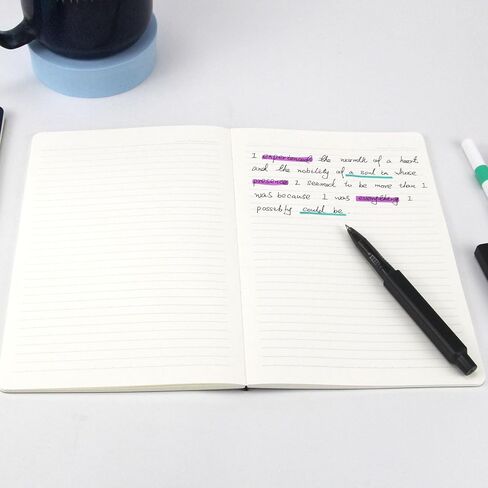 I experienced the warmth of a heart
and the nobility of a soul in whose
presence I seemed to be more than I
was because I was everything I
possibly could be.